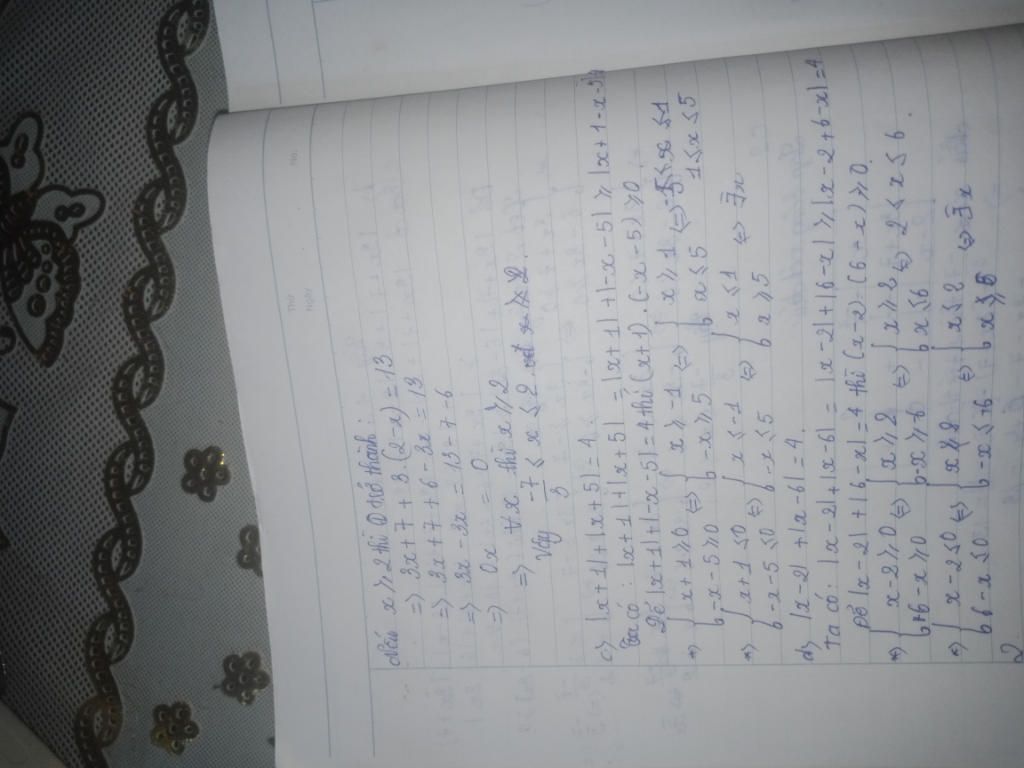 Thứ
Ngày
No.
Nếu x ≥ 2 thì ① trở thành:
=> 3x + 7 + 3.(2-x) = 13
=> 3x + 7 + 6 - 3x = 13
=> 3x - 3x = 13 - 7 - 6
=> 0x = 0
=> ∀x thì x ≥ 2
Vậy -7/3 ≤ x ≤ 2
c) |x+1| + |x+5| = 4
Ta có: |x+1| + |x+5| = |x+1| + |-x-5| ≥ |x+1-x-5|
Để |x+1| + |-x-5| = 4 thì (x+1).(-x-5) ≥ 0
*) { x+1 ≥ 0 <=> { x ≥ -1 <=> { x ≥ 1 <=> -5 ≤ x ≤ 1
-x-5 ≥ 0 -x ≥ 5 x ≤ 5 1 ≤ x ≤ 5
*) { x+1 ≤ 0 <=> { x ≤ -1 <=> { x ≤ 1 <=> ∃x
-x-5 ≤ 0 -x ≤ 5 x ≥ 5
d) |x-2| + |x-6| = 4
Ta có: |x-2| + |x-6| = |x-2| + |6-x| ≥ |x-2+6-x| = 4
Để |x-2| + |6-x| = 4 thì (x-2).(6-x) ≥ 0
*) { x-2 ≥ 0 <=> { x ≥ 2 <=> { x ≥ 2 <=> 2 ≤ x ≤ 6
6-x ≥ 0 -x ≥ -6 x ≤ 6
*) { x-2 ≤ 0 <=> { x ≤ 2 <=> { x ≤ 2 <=> ∃x
6-x ≤ 0 -x ≤ +6 x ≥ 6
2